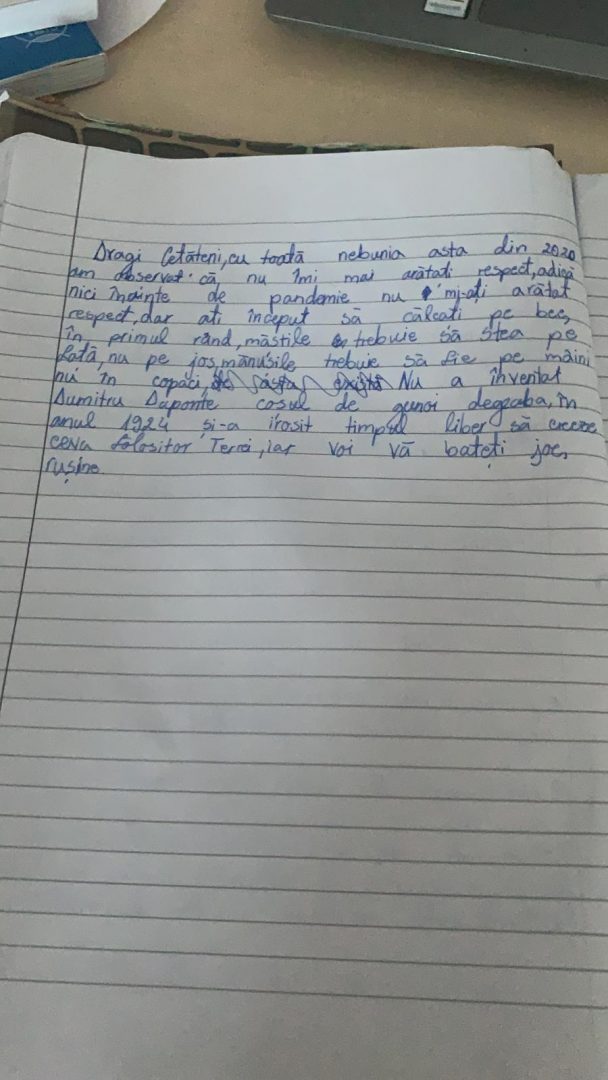 Dragi Cetăteni, cu toată nebunia asta din 2020
am observat că, nu îmi mai arătati respect, adică
nici înainte de pandemie nu mi-ati arătat
respect, dar ati început să călcati pe bec,
în primul rând, măstile trebuie să stea pe
fată, nu pe jos, mănusile trebuie să fie pe mâini
nu în copaci, Nu a inventat
Dumitru Daponte cosul de gunoi degeaba, în
anul 1924 si-a irosit timpul liber să creeze
ceva folositor Terrei, iar voi vă bateți joc,
rușine